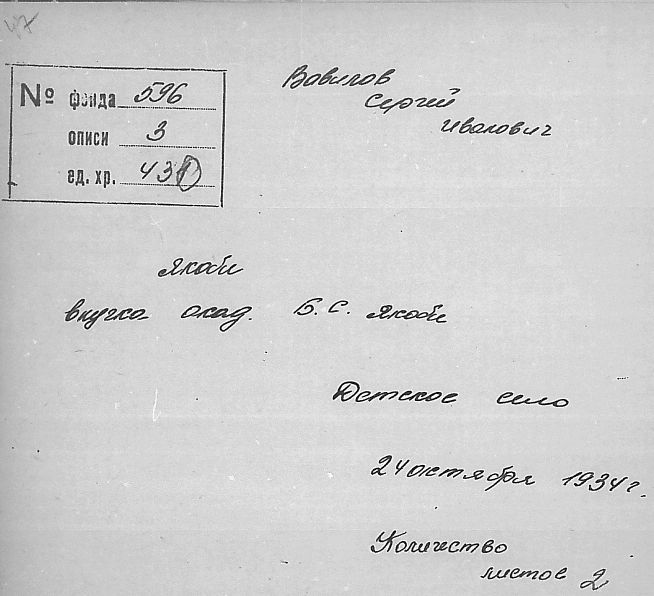 47
Вавилов
Сергей
Иванович
№ фонда 596
описи 3
ед. хр. 431
Якоби
внучка акад. Б.С. Якоби
Детское село
24 октября 1934 г.
Количество
листов 2